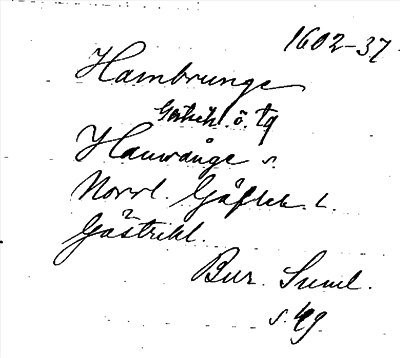 1602-37
Hambrunge
Gästrikl. ö. tg
Hamrånge s.
Norrl. Gäfleb. l.
Gästrikl.
Bur. Suml.
s. 49